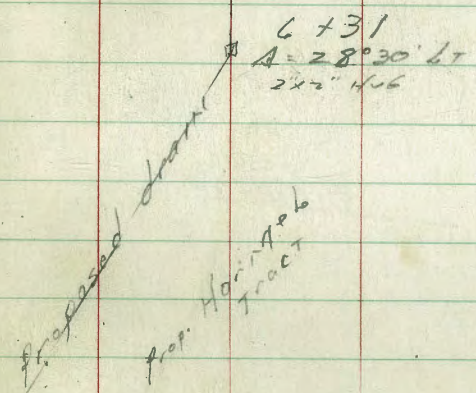 6+31
Δ = 28°30' LT
2"x2" Hub
Proposed drain
prop.
Tract